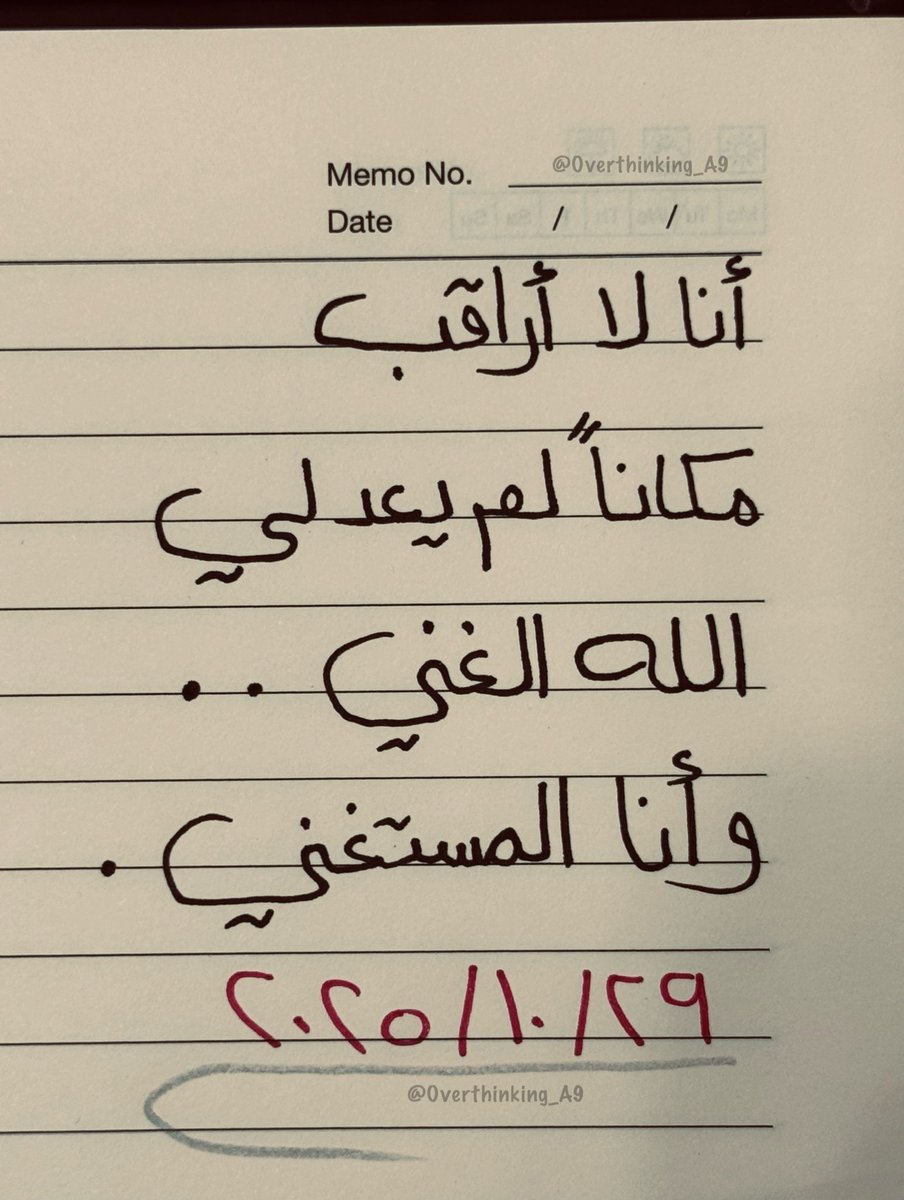 Memo No. @Overthinking_A9
Date / /
أنا لا أراقب
مكاناً لم يعد لي
الله الغني ..
وأنا المستغني .
٢٠٢٥/١٠/٢٩
@Overthinking_A9